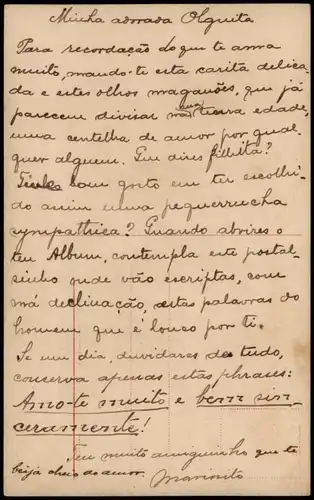 Minha adorada Olguita
Para recordação do que te ama
muito, mando-te esta carita delica-
da e estes olhos maganões, que já
parecem divisar, na tenra edade,
uma centelha de amor por qual-
quer alguem. Que dizes filhita?
Tive bom gosto em ter escolhi-
do assim uma pequerrucha
sympathica? Quando abrires o
teu Album, contempla este postal-
sinho onde vão escriptas, com
má declinação, estas palavras do
homem que é louco por ti.
Se um dia, duvidares de tudo,
conserva apenas estas phrases:
Amo-te muito e bem sin-
ceramente!
Teu muito amiguinho que te
beija cheio de amor.
Mariosito